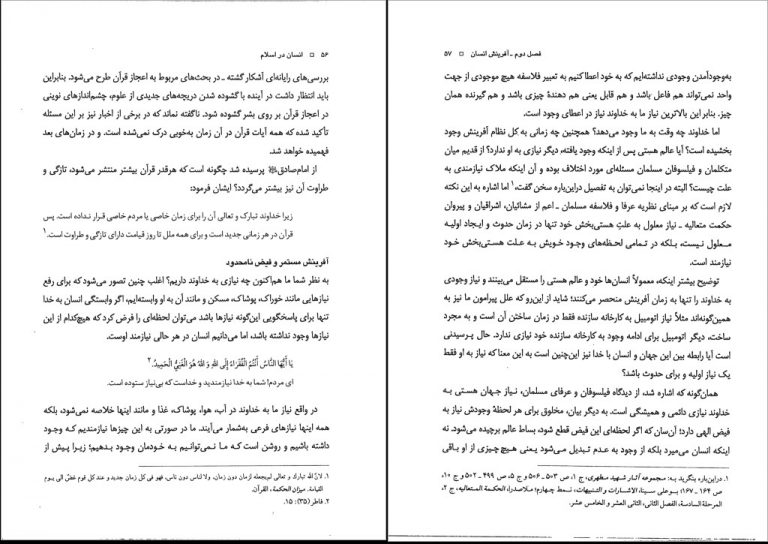 ۵۶ □ انسان در اسلام
بررسی‌های رایانه‌ای آشکار گشته ـ در بحث‌های مربوط به اعجاز قرآن طرح می‌شود. بنابراین
باید انتظار داشت در آینده با گشوده شدن دریچه‌های جدیدی از علوم، چشم‌اندازهای نوینی
در اعجاز قرآن بر روی بشر گشوده شود. ناگفته نماند که در برخی از اخبار نیز بر این مسئله
تأکید شده که همه آیات قرآن در آن زمان به‌خوبی درک نمی‌شده است. و در زمان‌های بعد
فهمیده خواهد شد.
از امام‌صادق پرسیده شد چگونه است که هرقدر قرآن بیشتر منتشر می‌شود، تازگی و
طراوت آن نیز بیشتر می‌گردد؟ ایشان فرمود:
زیرا خداوند تبارک و تعالی آن را برای زمان خاصی یا مردم خاصی قرار نداده است. پس
قرآن در هر زمانی جدید است و برای همه ملل تا روز قیامت دارای تازگی و طراوت است.۱
آفرینش مستمر و فیض نامحدود
به نظر شما ما هم‌اکنون چه نیازی به خداوند داریم؟ اغلب چنین تصور می‌شود که برای رفع
نیازهایی مانند خوراک، پوشاک، مسکن و مانند آن به او وابسته‌ایم. اگر وابستگی انسان به خدا
تنها برای پاسخگویی این‌گونه نیازها باشد می‌توان لحظه‌ای را فرض کرد که هیچ‌کدام از این
نیازها وجود نداشته باشد، اما می‌دانیم انسان در هر حالی نیازمند اوست.
يَا أَيُّهَا النَّاسُ أَنْتُمُ الْفُقَرَاءُ إِلَى اللَّهِ وَاللَّهُ هُوَ الْغَنِيُّ الْحَمِيدُ.۲
ای مردم! شما به خدا نیازمندید و خداست که بی‌نیاز ستوده است.
در واقع نیاز ما به خداوند در آب، هوا، پوشاک، غذا و مانند اینها خلاصه نمی‌شود، بلکه
همه اینها نیازهای فرعی به‌شمار می‌آیند. ما در صورتی به این چیزها نیازمندیم که وجود
داشته باشیم و روشن است که ما نمی‌توانیم به خودمان وجود بدهیم؛ زیرا پیش از
۱. لانّ الله تبارک و تعالی لم‌یجعله لزمان دون زمان، ولا لناس دون ناس، فهو فی کل زمان جدید و عند کل قوم غضّ الی یوم
القیامة. میزان الحکمة، القرآن.
۲. فاطر (۳۵): ۱۵.
فصل دوم ـ آفرینش انسان □ ۵۷
به‌وجودآمدن وجودی نداشته‌ایم که به خود اعطا کنیم به تعبیر فلاسفه هیچ موجودی از جهت
واحد نمی‌تواند هم فاعل باشد و هم قابل یعنی هم دهندهٔ چیزی باشد و هم گیرنده همان
چیز. بنابراین بالاترین نیاز ما به خداوند نیاز در اعطای وجود است.
اما خداوند چه وقت به ما وجود می‌دهد؟ همچنین چه زمانی به کل نظام آفرینش وجود
بخشیده است؟ آیا عالم هستی پس از اینکه وجود یافته، دیگر نیازی به او ندارد؟ از قدیم میان
متکلمان و فیلسوفان مسلمان مسئله‌ای مورد اختلاف بوده و آن اینکه ملاک نیازمندی به
علت چیست؟ البته در اینجا نمی‌توان به تفصیل دراین‌باره سخن گفت،۱ اما اشاره به این نکته
لازم است که بر مبنای نظریه عرفا و فلاسفه مسلمان ـ اعم از مشائیان، اشراقیان و پیروان
حکمت متعالیه ـ نیاز معلول به علتِ هستی‌بخش خود تنها در زمان حدوث و ایجاد اولیـه
معـلول نیسـت، بـلکه در تـمامی لحظه‌هـای وجـود خـویش بـه عـلت هسـتی‌بخش خـود
نیازمند است.
توضیح بیشتر اینکه، معمولاً انسان‌ها خود و عالم هستی را مستقل می‌بینند و نیاز وجودی
به خداوند را تنها به زمان آفرینش منحصر می‌کنند؛ شاید از این‌رو که علل پیرامون ما نیز به
همین‌گونه‌اند مثلاً نیاز اتومبیل به کارخانه سازنده فقط در زمان ساختن آن است و به مجرد
ساخت، دیگر اتومبیل برای ادامه وجود به کارخانه سازنده خود نیازی ندارد. حال پرسیدنی
است آیا رابطه بین این جهان و انسان با خدا نیز این‌چنین است به این معنا که نیاز به او فقط
یک نیاز اولیه و برای حدوث باشد؟
همان‌گونه که اشاره شد، از دیدگاه فیلسوفان و عرفای مسلمان، نیـاز جـهان هسـتی بـه
خداوند نیازی دائمی و همیشگی است. به دیگر بیان، مخلوق برای هر لحظهٔ وجودش نیاز به
فیض الهی دارد؛ آن‌سان که اگر لحظه‌ای این فیض قطع شود، بساط عالم برچیده می‌شود. نه
اینکه انسان می‌میرد بلکه از وجود به عدم تبدیل می‌شود یعنی هیچ چیزی از او باقی
۱. دراین‌باره بنگرید به: مجموعه آثار شهید مطهری، ج ۱، ص ۵۰۳ ـ ۵۰۶ و ج ۵، ص ۴۹۹ ـ ۵۰۲ و ج ۱۰،
ص ۱۶۴ ـ ۱۶۷؛ بوعلی سینا، الاشارات و التنبیهات، نمط چهارم؛ ملاصدرا، الحکمة المتعالیه، ج ۲،
المرحلة السادسة، الفصل الثانی، الثانی العشر و الخامس عشر.